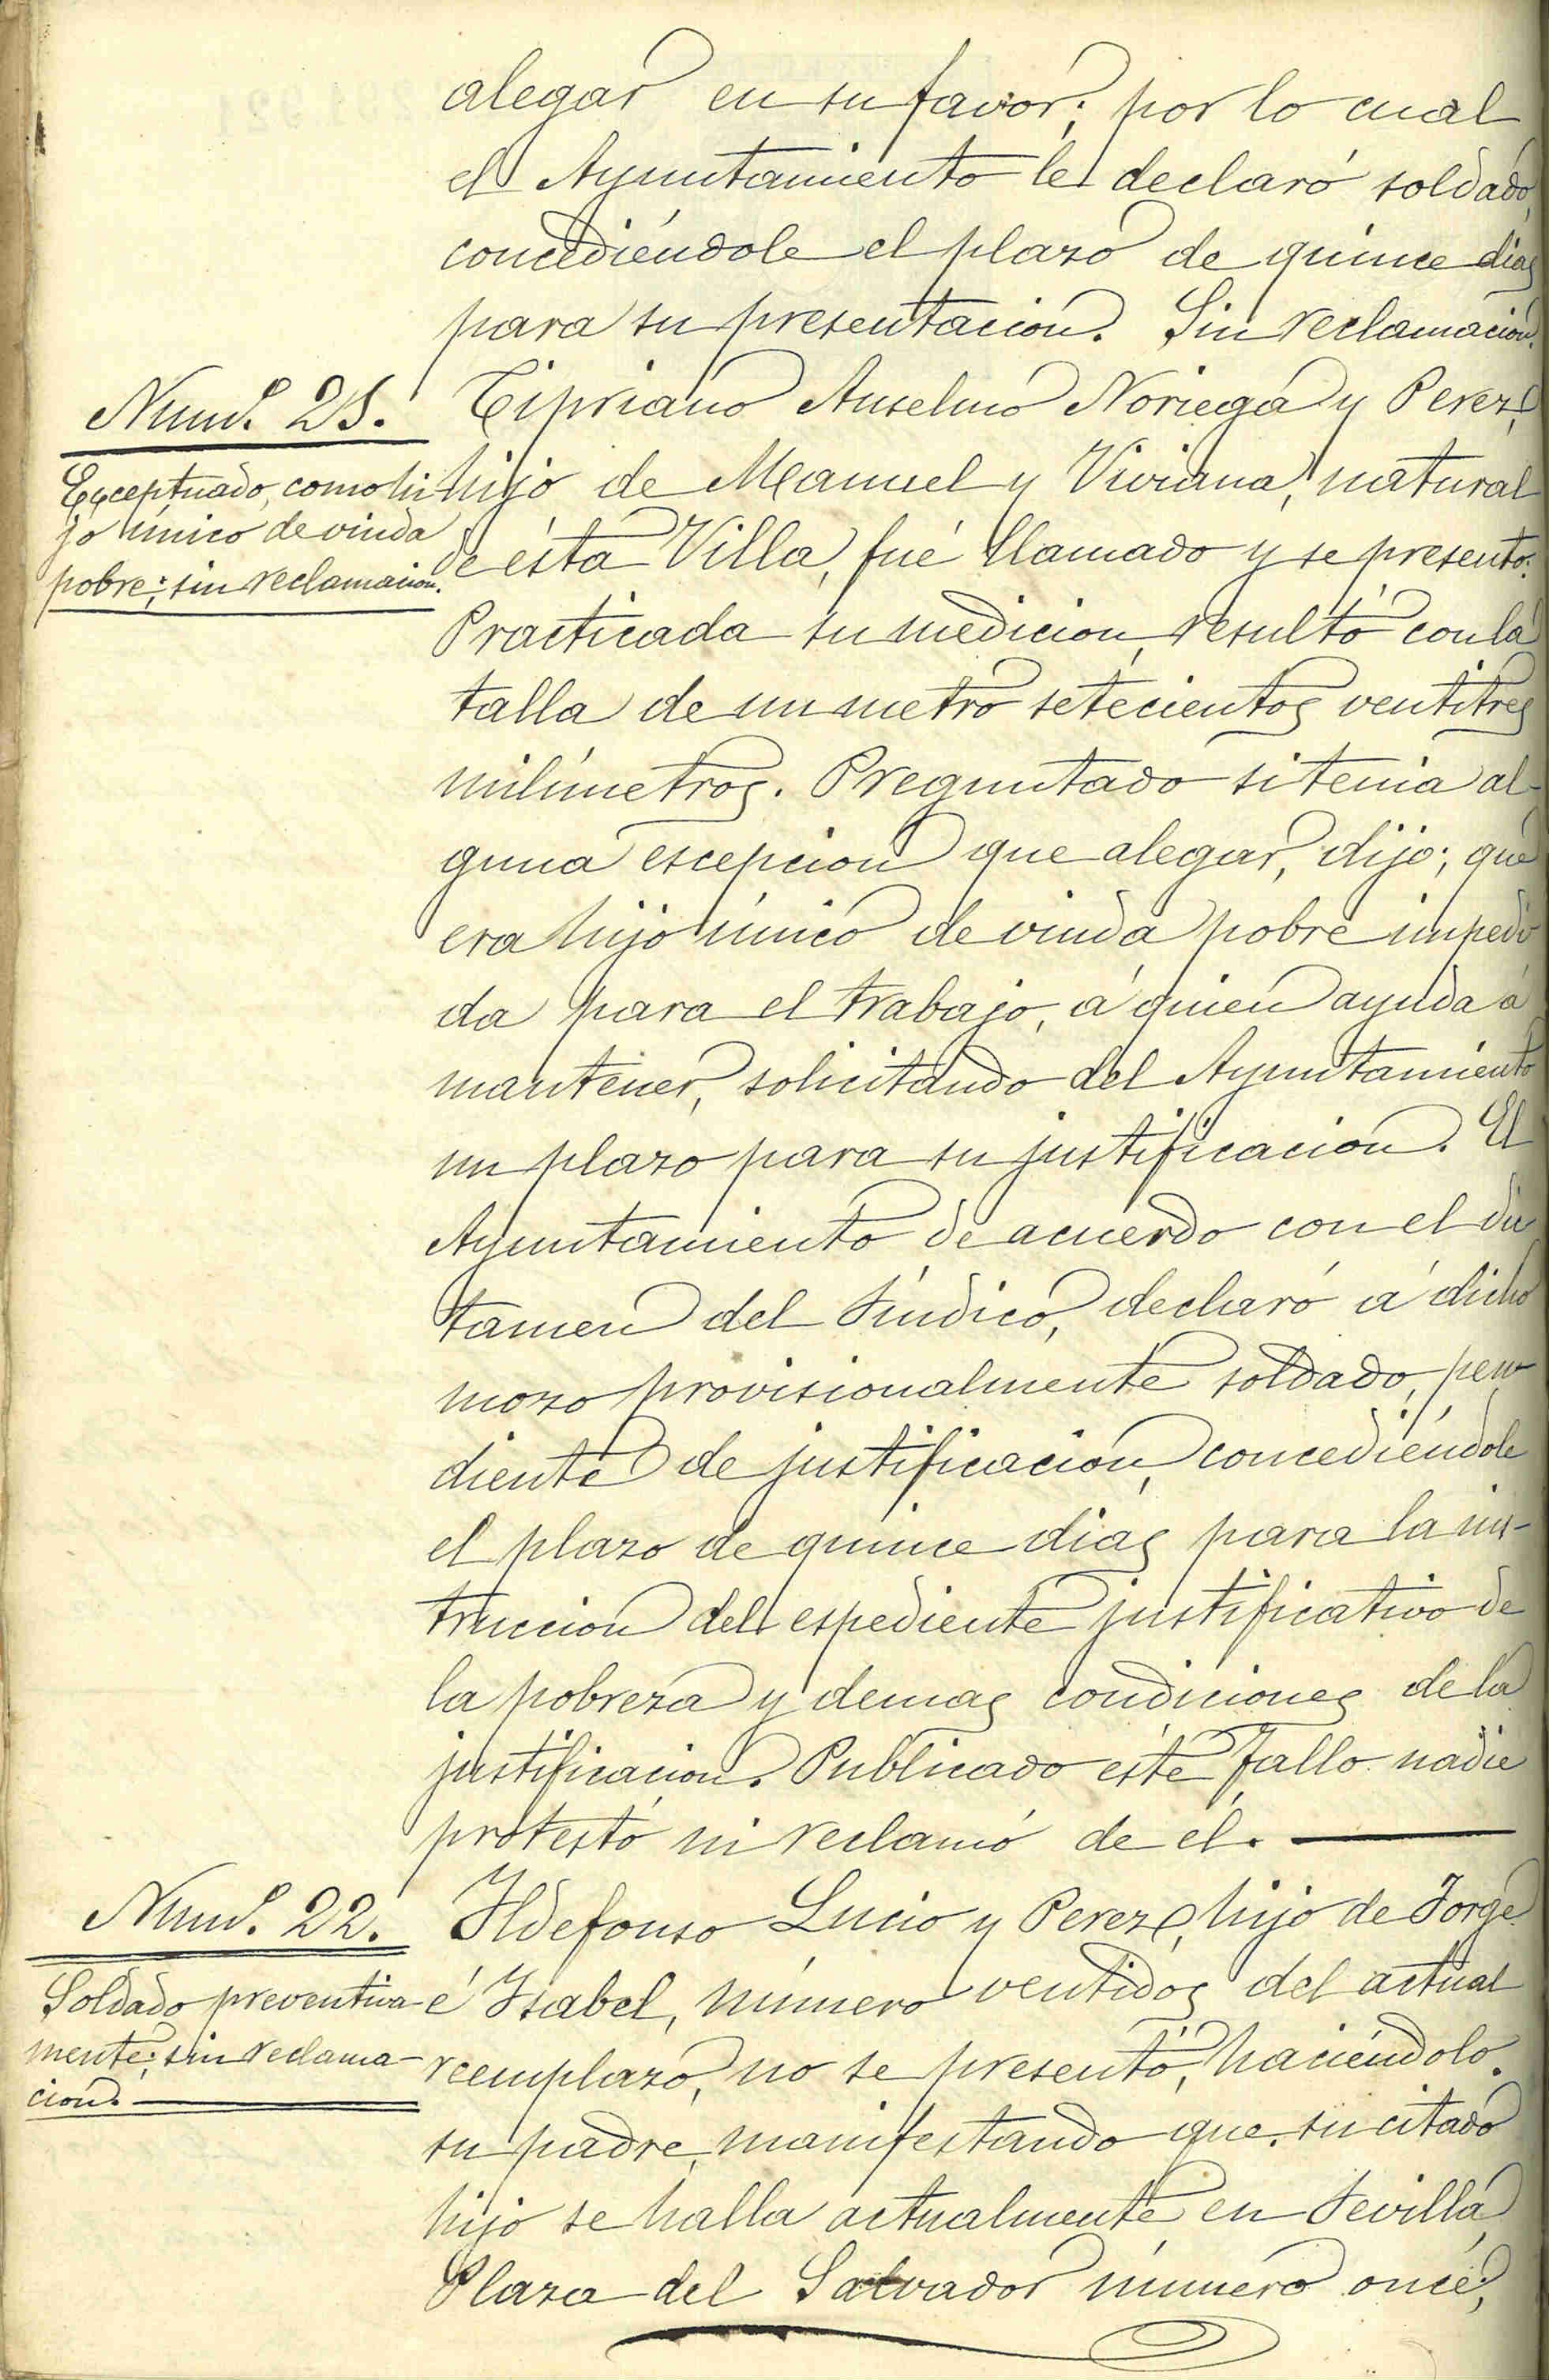 alegar en su favor; por lo cual
el Ayuntamiento le declaró soldado,
concediéndole el plazo de quince dias
para su presentacion. Sin reclamacion.
Num.º 21.
Exceptuado, como hi
jo único de viuda
pobre; sin reclamacion.
Cipriano Anselmo Noriega y Perez,
hijo de Manuel y Viviana, natural
de ésta Villa, fué llamado y se presentó.
Practicada su medicion, resultó con la
talla de un metro setecientos ventitres
milímetros. Preguntado si tenia al-
guna escepcion que alegar, dijo; que
era hijo único de viuda pobre impedi
da para el trabajo, á quien ayuda á
mantener, solicitando del Ayuntamiento
un plazo para su justificacion. El
Ayuntamiento de acuerdo con el dic
tamen del Síndico, declaró á dicho
mozo provisionalmente soldado, pen
diente de justificacion, concediéndole
el plazo de quince dias para la ins-
truccion del espediente justificativo de
la pobreza y demas condiciones de la
justificacion. Publicado éste fallo nadie
protestó ni reclamó de él.
Num.º 22.
Soldado preventiva
mente; sin reclama-
cion.
Ildefonso Lucio y Perez, hijo de Jorge
é Isabel, número ventidos del actual
reemplazo, no se presentó, haciéndolo
su padre, manifestando que su citado
hijo se halla actualmente en Sevilla,
Plaza del Salvador número once;